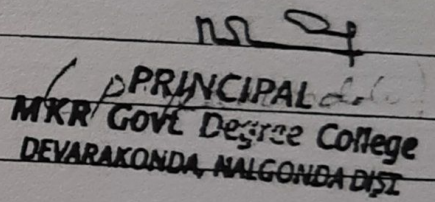 PRINCIPAL
MKR Govt Degree College
DEVARAKONDA, NALGONDA DIST